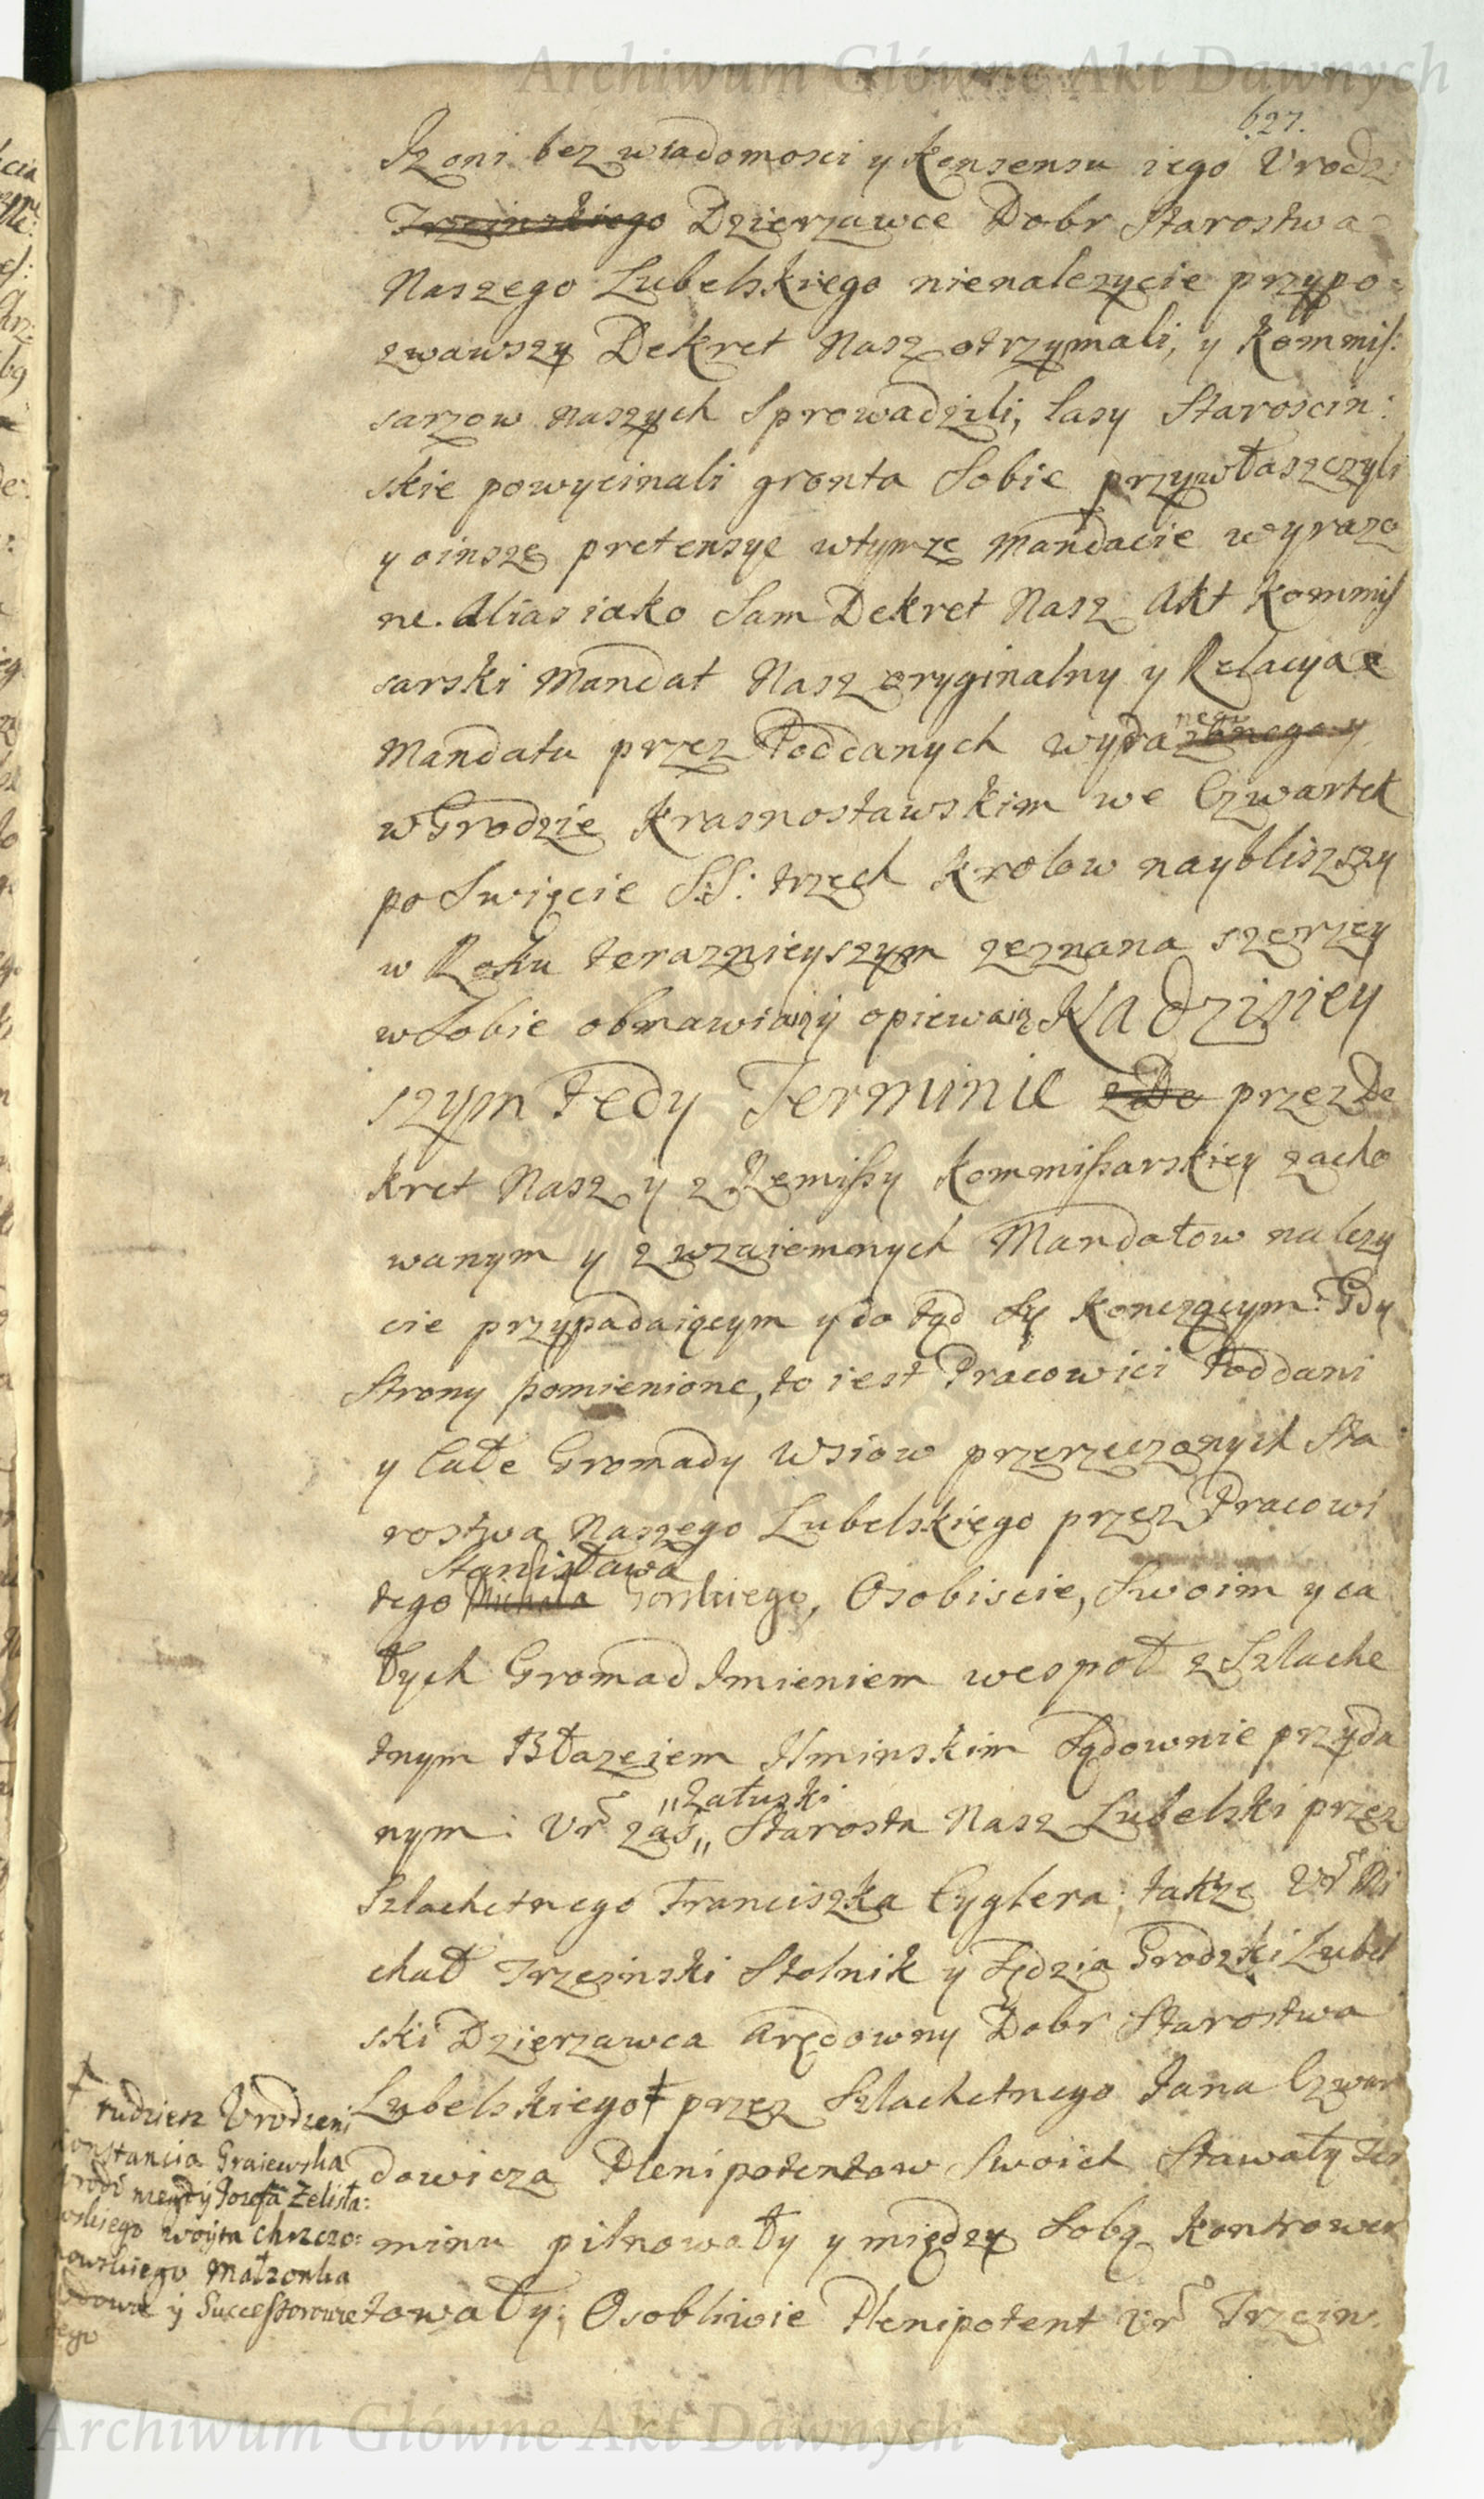 Archiwum Główne Akt Dawnych
627.
Iz oni bez wiadomosci y Konsensu iego Vrodz:
Trzcinskiego Dzierzawce Dobr Starostwa
Naszego Lubelskiego nienalezycie przypo=
zwawszy Dekret Nasz otrzymali, y Kommiss:
sarzow naszych Sprowadzili, lasy Staroscin:
skie powycinali gronta Sobie przywłaszczyli
y oinsze pretensye wtymze Mandacie wyrazo
ne. Alias iako Sam Dekret Nasz Akt Kommis
sarski Mandat Nasz oryginalny y Relacya e
Mandatu przez Poddanych wyda
nego
w Grodzie Krasnostawskim we Czwartek
po Swięcie SS: trzech Krolow naybliszszy
w Roku teraznieyszym zeznana szerzey
w Sobie obmawiaią y opiewaią Na Dzisiey
szym Tedy Terminie przez De
kret Nasz y z Remissy Kommissarskiey zacho
wanym y z wzaiemnych Mandatow nalezy
cie przypadaiącym y do tąd Się Konczącym. Gdy
Strony pomienione, to iest Pracowici Poddani
y Całe Gromady Wsiow przerzeczonych Sta
rostwa Naszego Lubelskiego przez Pracowi
Stanisława
tego Michała Gorskiego, Osobiscie, Swoim y ca
łych Gromad Imieniem wespoł z Szlache
tnym Błazeiem Ilminskim Sądownie przyda
nym. Vr zas „ Starosta Nasz Lubelski przez
„Załuski
Szlachetnego Franciszka Cyglera, takze Vr Mi
chał Trzcinski Stolnik y Sędzia Grodzki Lubel
ski Dzierzawca Arędowny Dobr Starostwa
Lubelskiego ‡ przez Szlachetnego Iana Czwar
dowicza Plenipotentow Swoich Stawały Ter
minu pilnowały y między Sobą Kontrower
towały; Osobliwie Plenipotent Vr Trzcin.
‡ tudziesz Vrodzeni
Konstancia Graiewska
niegdy Iozefa Zelisła:
wskiego woyta chrzczo:
nowskiego Małzonka
wdowa y Successorowie
iego
Archiwum Główne Akt Dawnych